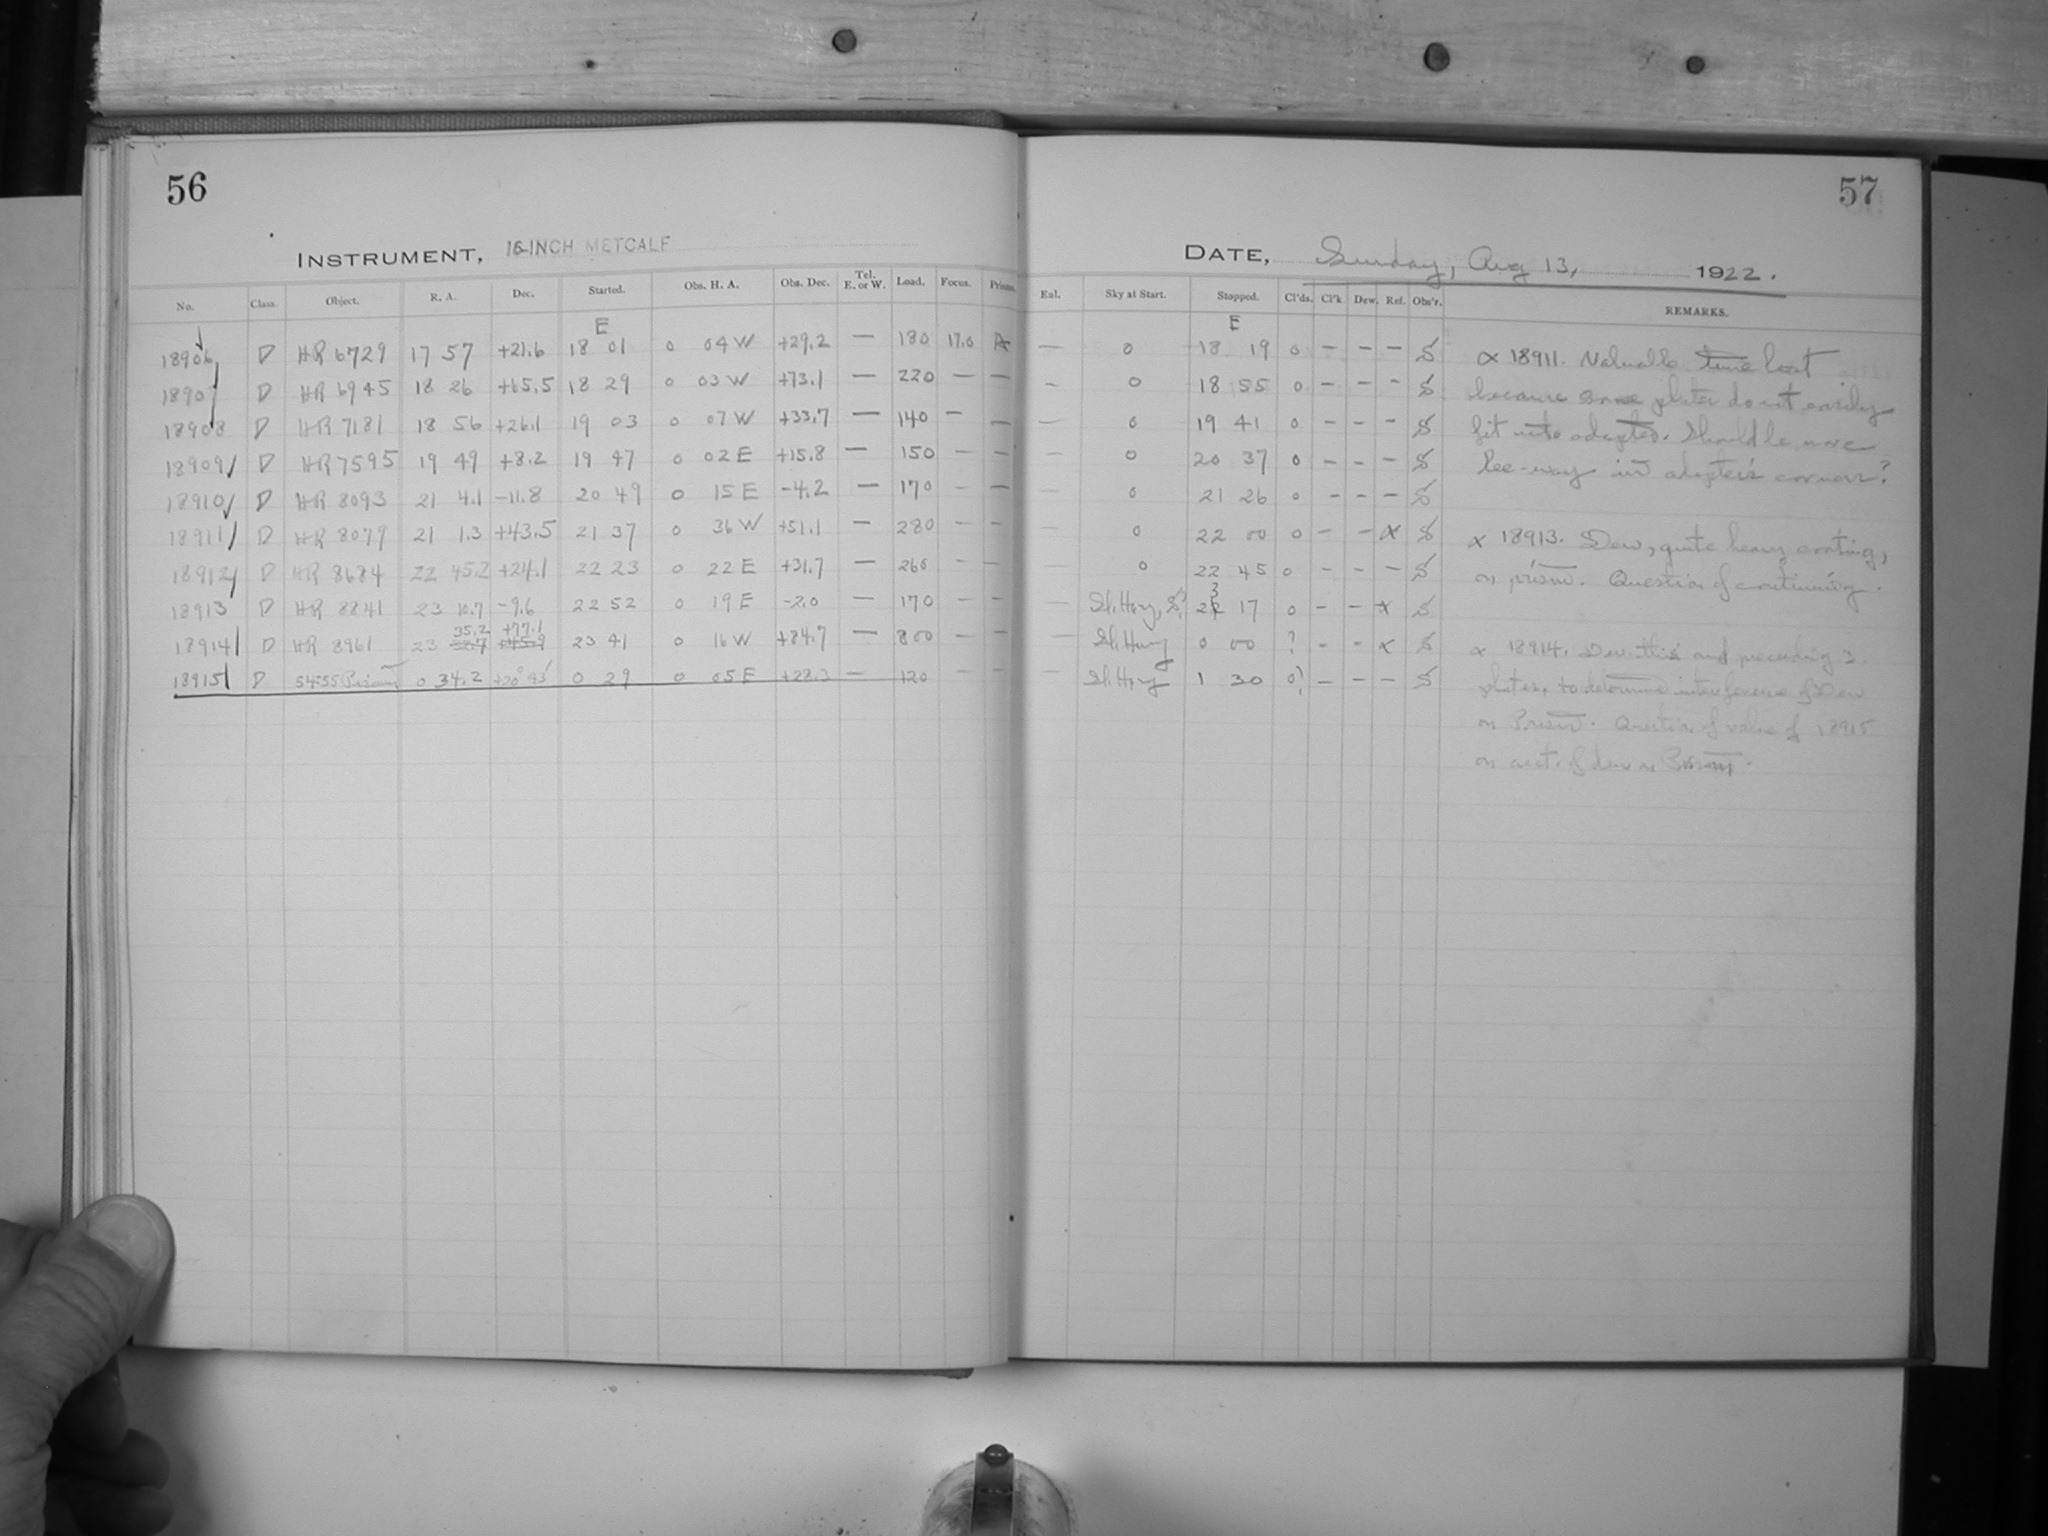 56
57
INSTRUMENT, 16-INCH METCALF
DATE, Sunday, Aug 13, 1922.
No. Class. Object. R. A. Dec. Started. Obs. H. A. Obs. Dec. Tel. E. or W. Load. Focus. Prisms. Enl. Sky at Start. Stopped. Cl'ds. Cl'k. Dew. Ref. Obs'r. REMARKS.
E E
18906 D HR 6729 17 57 +21.6 18 01 0 04 W +29.2 — 180 17.0 A — 0 18 19 0 - - - S
18907 D HR 6945 18 26 +65.5 18 29 0 03 W +73.1 — 220 — — - 0 18 55 0 - - - S
18908 D HR 7181 18 56 +26.1 19 03 0 07 W +33.7 — 140 — — — 0 19 41 0 - - - S
18909 D HR 7595 19 49 +8.2 19 47 0 02 E +15.8 — 150 — — — 0 20 37 0 - - - S
18910 D HR 8093 21 4.1 -11.8 20 49 0 15 E -4.2 — 170 — — — 0 21 26 0 - - - S
18911 D HR 8079 21 1.3 +43.5 21 37 0 36 W +51.1 — 280 — — — 0 22 00 0 - - x S
18912 D HR 8684 22 45.2 +24.1 22 23 0 22 E +31.7 — 260 — — — 0 22 45 0 - - - S
18913 D HR 8841 23 10.7 -9.6 22 52 0 19 E -2.0 — 170 — — — Sl. Hazy, S? 23 17 0 - - x S
35.2 +77.1
18914 D HR 8961 23 23 41 0 16 W +84.7 — 800 — — — Sl. Hazy 0 00 ? - - x S
18915 D 54=55 Piscium 0 34.2 +20° 43' 0 29 0 05 E +28.3 — 120 — — — Sl. Hazy 1 30 0? - - - S
x 18911. Valuable time lost
because some plates do not easily
fit into adapter. Should be more
lee-way in adapter's corners?
x 18913. Dew, quite heavy coating,
on prism. Question of continuing.
x 18914. Dev. this and preceding 2
plates, to determine interference of Dew
on Prism. Question of value of 18915
on acct. of dew on Prism.